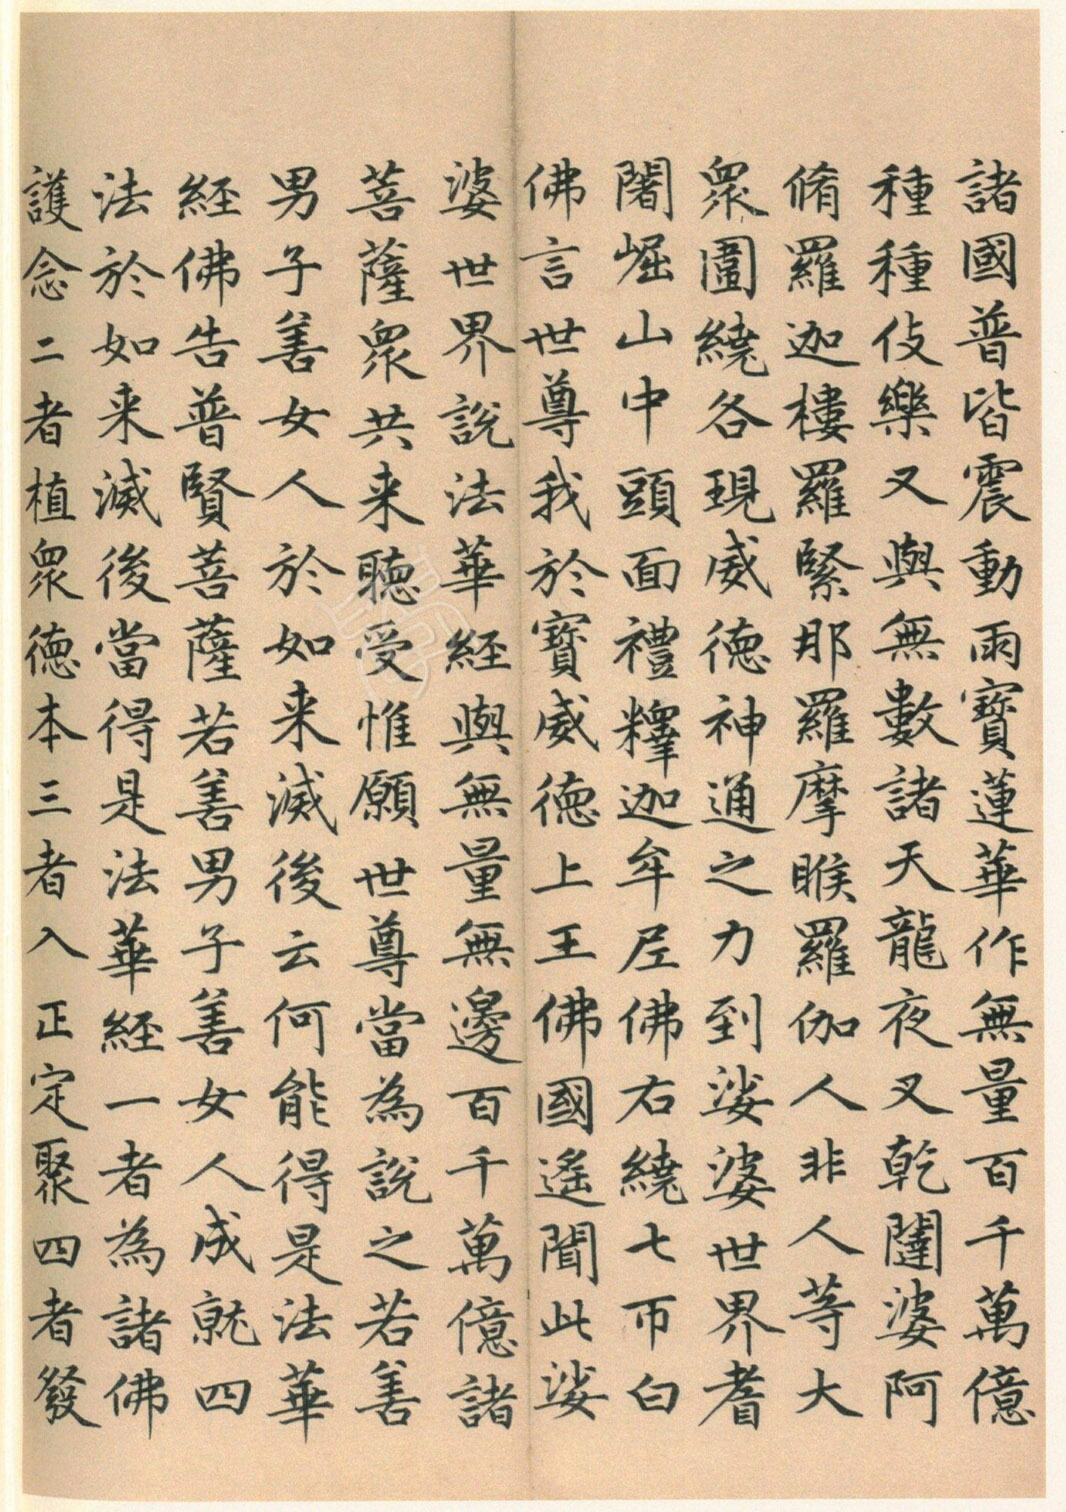 諸國普皆震動雨寶蓮華作無量百千萬億
種種伎樂又與無數諸天龍夜叉乾闥婆阿
脩羅迦樓羅緊那羅摩睺羅伽人非人等大
眾圍繞各現威德神通之力到娑婆世界耆
闍崛山中頭面禮釋迦牟尼佛右繞七帀白
佛言世尊我於寶威德上王佛國遙聞此娑
婆世界說法華經與無量無邊百千萬億諸
菩薩眾共来聽受惟願世尊當為說之若善
男子善女人於如来滅後云何能得是法華
經佛告普賢菩薩若善男子善女人成就四
法於如来滅後當得是法華經一者為諸佛
護念二者植眾德本三者入正定聚四者發